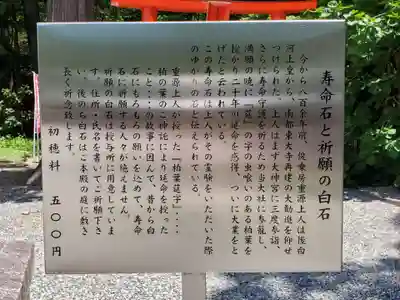 寿命石と祈願の白石
今から八百余年前、俊乗房重源上人は後白
河上皇から、南都東大寺再建の大勧進を仰せ
つけられた。上人はまず大神宮に三度参詣、
さらに寿命守護を祈るため当大社に参籠し、
満願の暁に「莚」の字の虫喰いのある柏葉を
授かり二十年の延命を感得、ついに大業をと
げたと云われている。
この寿命石は上人がその霊験をいただいた際
のゆかりの石と伝えられている。
重源上人が授った「柏葉莚字」・・・
柏の葉のご神託により延命を授った
こと・・・の故事に因んで、昔から白
石にもろもろの願いを込めて、寿命
石に祈願する人々が絶えません。
祈願の白石は授与所に用意してま
す。住所・氏名を書いてご祈願下さ
い。後のち白石はご本殿の庭に敷き
長く祈念致します。
初穂料　五〇〇円